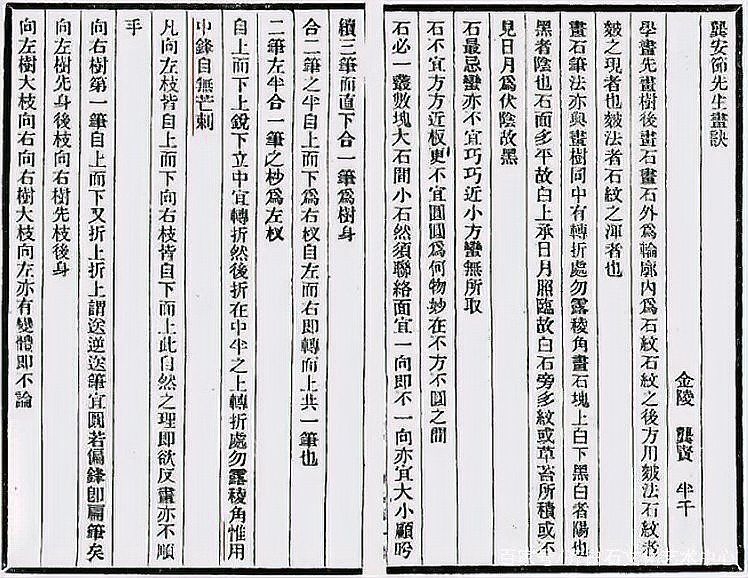 龔安節先生畫訣
金陵 龔賢 半千
學畫先畫樹後畫石畫石外為輪廓內為石紋石紋之後方用皴法石紋者
皴之現者也皴法者石紋之渾者也
畫石筆法亦與畫樹同中有轉折處勿露稜角畫石塊上白下黑白者陽也
黑者陰也石面多平故白上承日月照臨故白石旁多紋或草苔所積或不
見日月為伏陰故黑
石最忌蠻亦不宜巧巧近小方蠻無所取
石不宜方方近板更不宜圓圓為何物妙在不方不圓之間
石必一叢數塊大石間小石然須聯絡面宜一向即不一向亦宜大小顧盼
續三筆而直下合一筆為樹身
合二筆之半自上而下為右杈自左而右即轉而上共一筆也
二筆左半合一筆之杪為左杈
自上而下上銳下立中宜轉折然後折在中半之上轉折處勿露稜角惟用
中鋒自無芒刺
凡向左枝皆自上而下向右枝皆自下而上此自然之理即欲反畫亦不順
手
向右樹第一筆自上而下又折上折上謂送逆送筆宜圓若偏鋒即扁筆矣
向左樹先身後枝向右樹先枝後身
向左樹大枝向右向右樹大枝向左亦有變體即不論